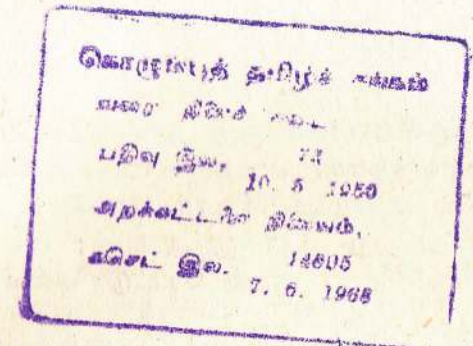 கொழும்புத் தமிழ்ச் சங்கம்
பதிவு இல. 72
10. 5 1950
அறக்கட்டளை நிலையம்,
கசெட் இல. 14805
7. 6. 1968